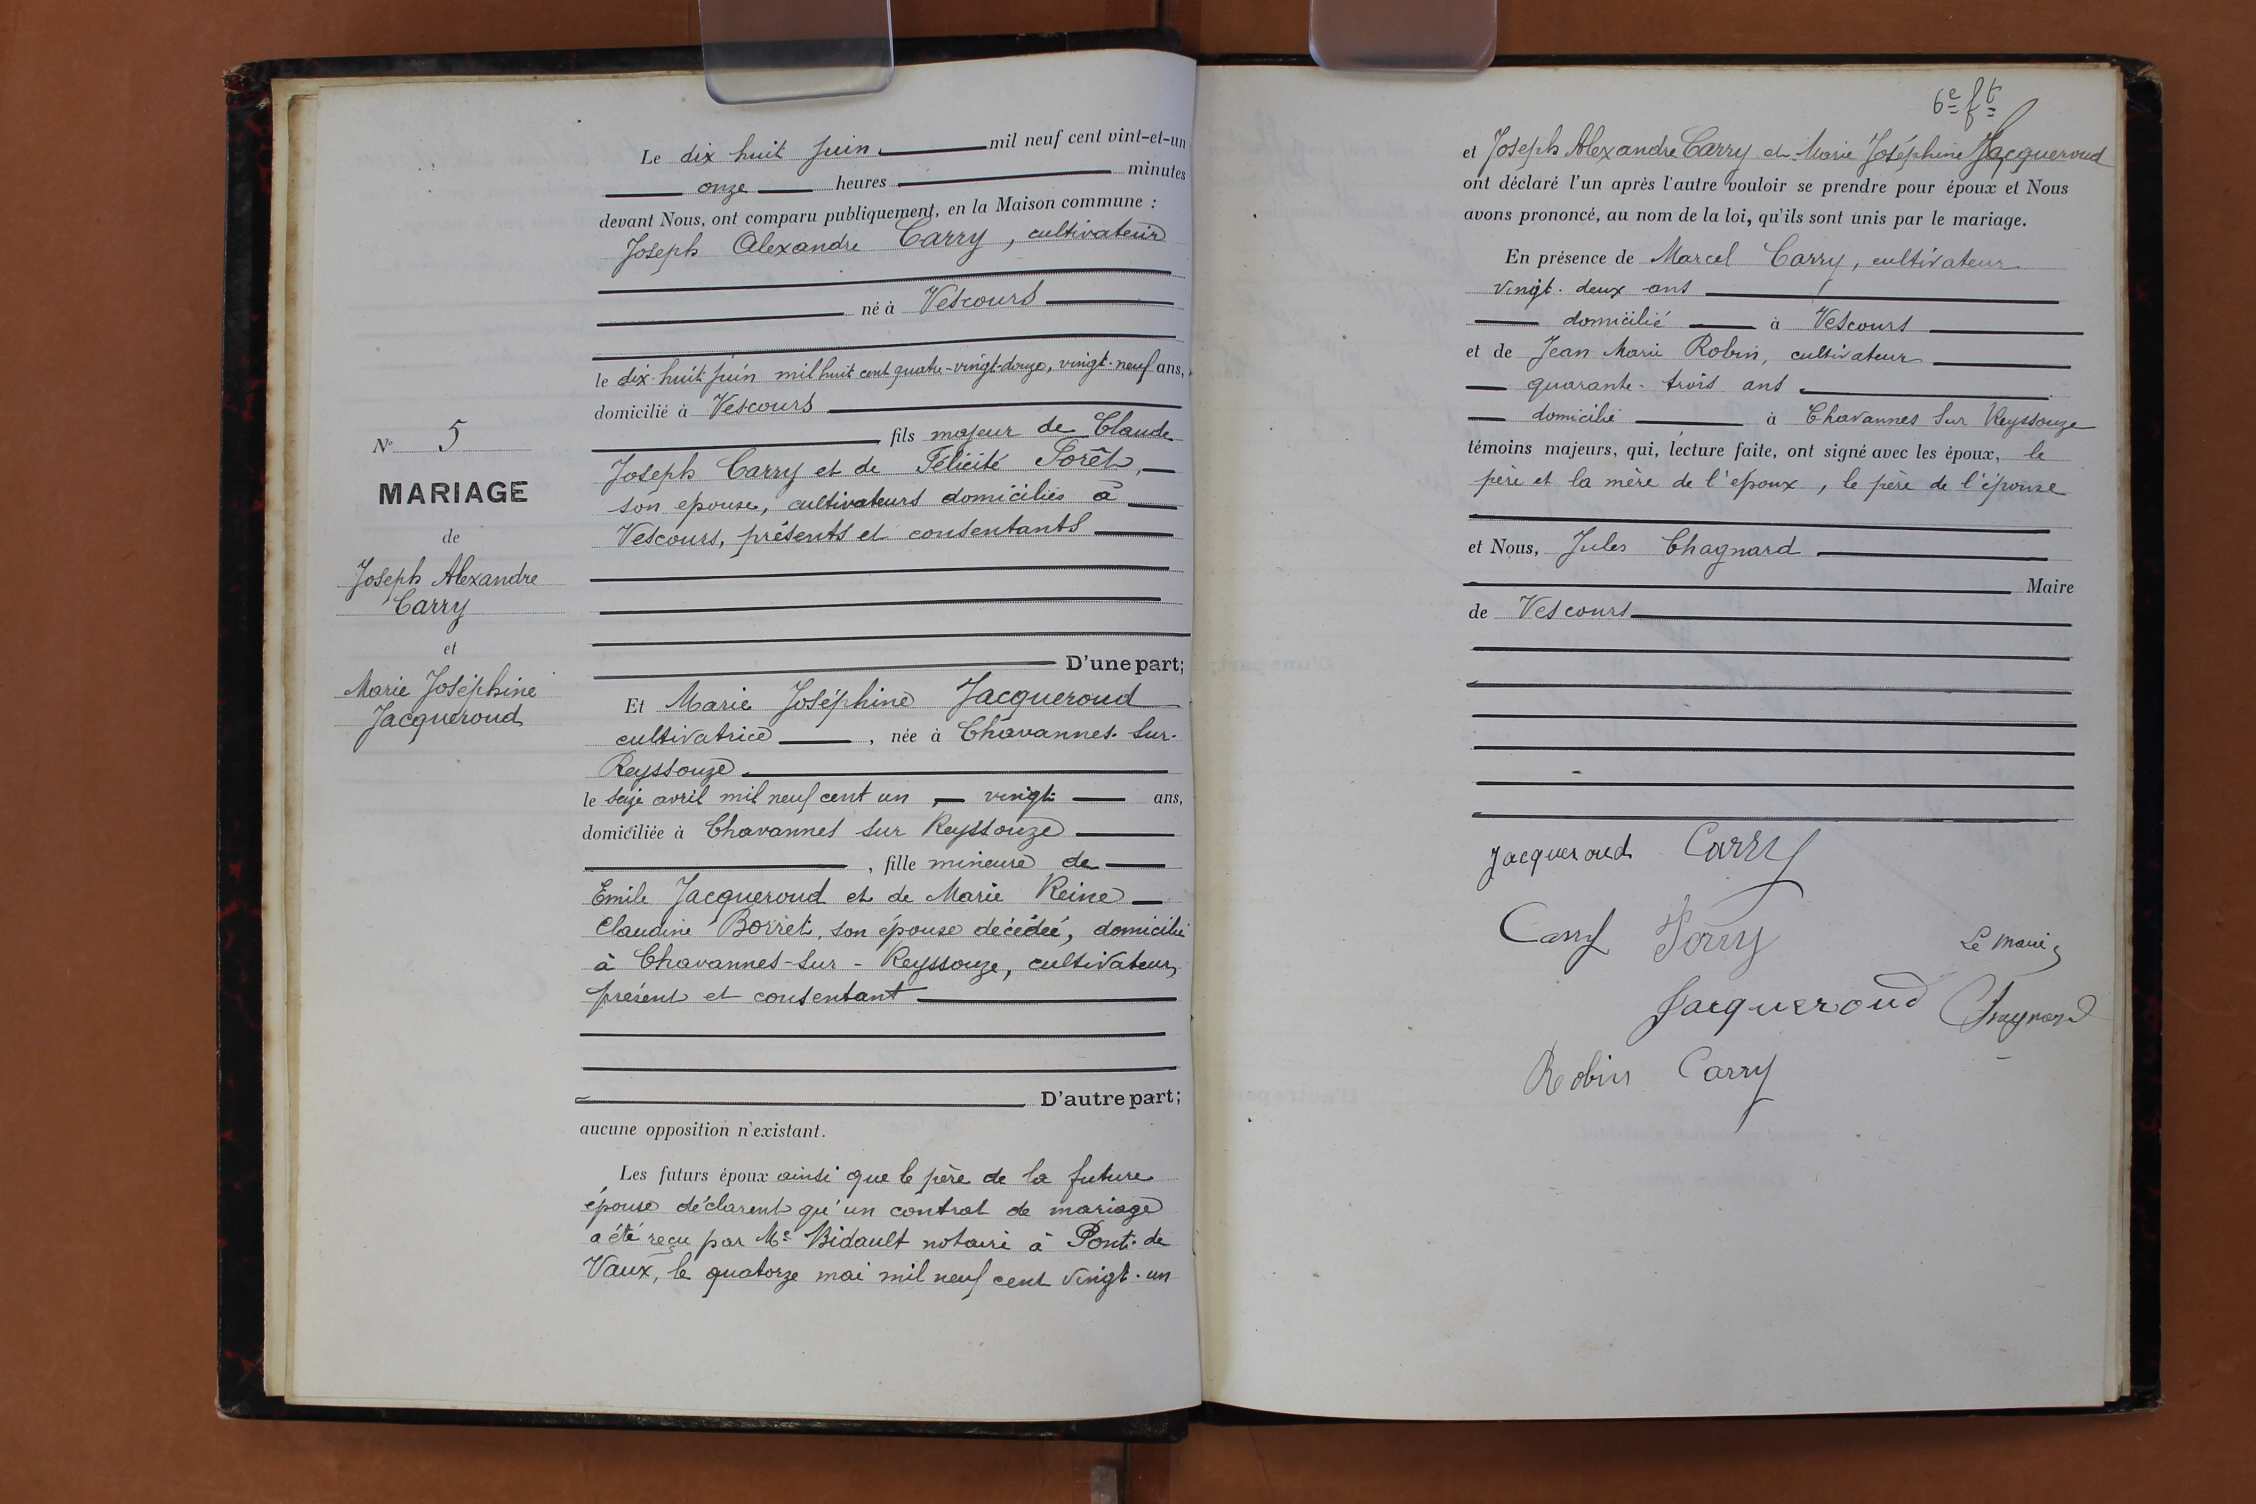 N° 5
MARIAGE
de
Joseph Alexandre
Carry
et
Marie Joséphine
Jacqueroud
Le dix huit juin mil neuf cent vint-et-un
onze heures minutes
devant Nous, ont comparu publiquement, en la Maison commune :
Joseph Alexandre Carry, cultivateur
né à Vescours
le dix-huit juin mil huit cent quatre-vingt-douze, vingt-neuf ans,
domicilié à Vescours
fils majeur de Claude
Joseph Carry et de Félicité Forêt,
son epouse, cultivateurs domiciliés à
Vescours, présents et consentants
D'une part;
Et Marie Joséphine Jacqueroud
cultivatrice, née à Chavannes-sur-
Reyssouze
le seize avril mil neuf cent un, vingt ans,
domiciliée à Chavannes sur Reyssouze
, fille mineure de
Emile Jacqueroud et de Marie Reine
Claudine Borret, son épouse décédée, domicilié
à Chavannes-sur-Reyssouze, cultivateur,
présent et consentant
D'autre part;
aucune opposition n'existant.
Les futurs époux ainsi que le père de la future
épouse déclarent qu'un contrat de mariage
a été reçu par Me Bidault notaire à Pont-de
Vaux, le quatorze mai mil neuf cent vingt-un
6e ft
et Joseph Alexandre Carry et Marie Joséphine Jacqueroud
ont déclaré l'un après l'autre vouloir se prendre pour époux et Nous
avons prononcé, au nom de la loi, qu'ils sont unis par le mariage.
En présence de Marcel Carry, cultivateur
vingt-deux ans
domicilié à Vescours
et de Jean Marie Robin, cultivateur
quarante-trois ans
domicilié à Chavannes sur Reyssouze
témoins majeurs, qui, lecture faite, ont signé avec les époux, le
père et la mère de l'époux, le père de l'épouse
et Nous, Jules Chagnard
Maire
de Vescours
Jacqueroud Carry
Carry
Le Maire
Jacqueroud Chagnard
Robin Carry